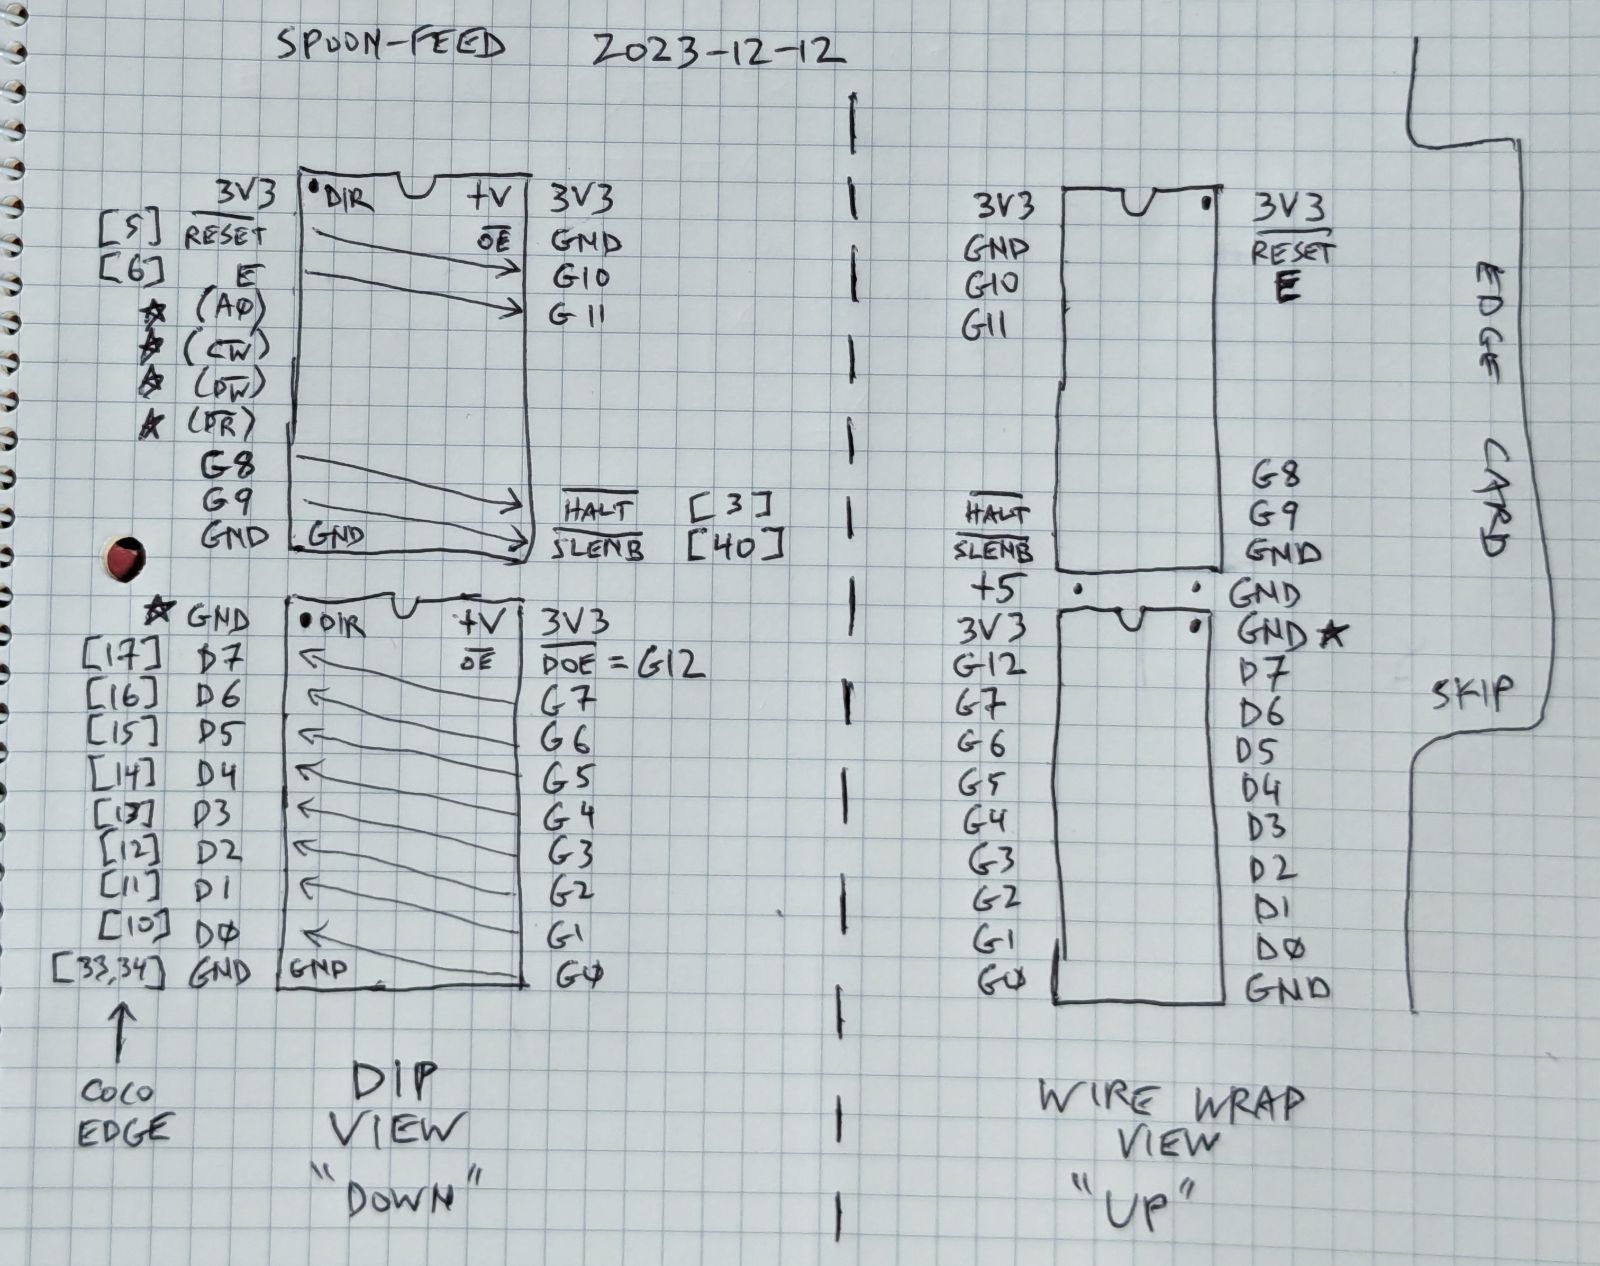 SPOON-FEED 2023-12-12
3V3 DIR +V 3V3
[5] RESET OE GND
[6] E G10
★ (AØ) G11
★ (CW)
★ (DW)
★ (DR)
G8
G9 HALT [3]
GND GND SLENB [40]
★ GND DIR +V 3V3
[17] D7 OE DOE = G12
[16] D6 G7
[15] D5 G6
[14] D4 G5
[13] D3 G4
[12] D2 G3
[11] D1 G2
[10] DØ G1
[33,34] GND GND GØ
COCO
EDGE
DIP
VIEW
"DOWN"
3V3 3V3
GND RESET
G10 E
G11
G8
HALT G9
SLENB GND
+5 GND
3V3 GND ★
G12 D7
G7 D6
G6 D5
G5 D4
G4 D3
G3 D2
G2 D1
G1 DØ
GØ GND
EDGE CARD
SKIP
WIRE WRAP
VIEW
"UP"